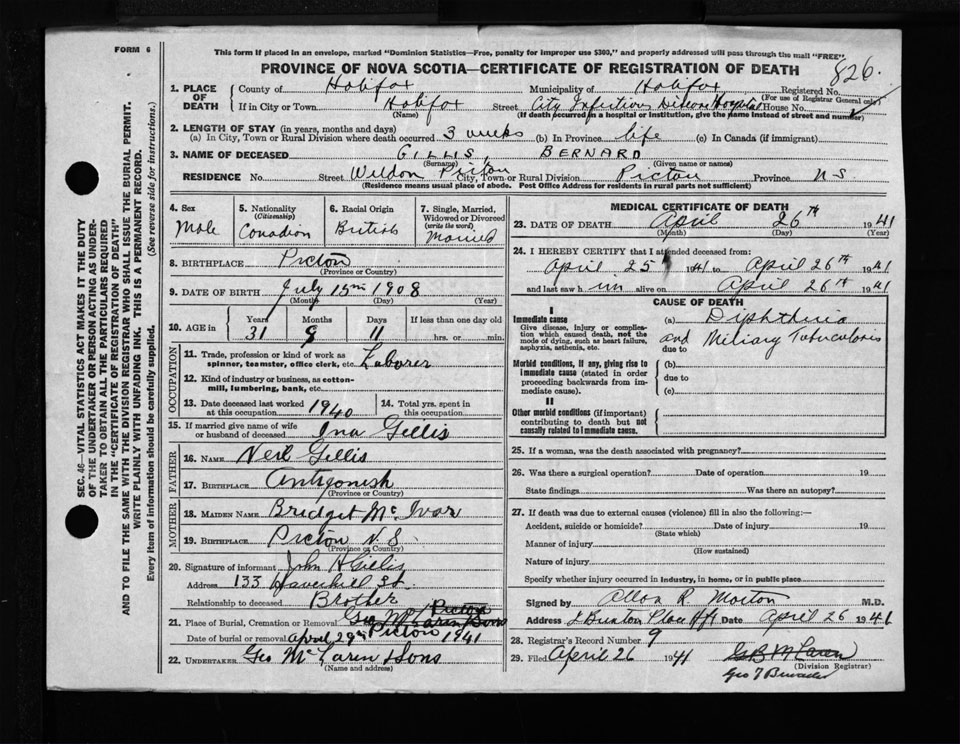 FORM 6
This form if placed in an envelope, marked "Dominion Statistics—Free, penalty for improper use $300," and properly addressed will pass through the mail "FREE".
PROVINCE OF NOVA SCOTIA—CERTIFICATE OF REGISTRATION OF DEATH
826.
1. PLACE OF DEATH County of Halifax Municipality of Halifax Registered No.
(For use of Registrar General only)
If in City or Town Halifax Street City Infectious Disease Hospital House No.
(Name) (If death occurred in a hospital or institution, give the name instead of street and number)
2. LENGTH OF STAY (in years, months and days)
(a) In City, Town or Rural Division where death occurred 3 weeks (b) In Province life (c) In Canada (if immigrant)
3. NAME OF DECEASED GILLIS, BERNARD
(Surname) (Given name or names)
RESIDENCE No. Street City, Town or Rural Division Pictou Province NS
(Residence means usual place of abode. Post Office Address for residents in rural parts not sufficient)
4. Sex Male
5. Nationality (Citizenship) Canadian
6. Racial Origin British
7. Single, Married, Widowed or Divorced (write the word) Married
8. BIRTHPLACE Pictou
(Province or Country)
9. DATE OF BIRTH July 15th 1908
(Month) (Day) (Year)
10. AGE in Years Months Days If less than one day old
31 9 11 hrs. or min.
OCCUPATION
11. Trade, profession or kind of work as spinner, teamster, office clerk, etc. Laborer
12. Kind of industry or business, as cotton-mill, lumbering, bank, etc.
13. Date deceased last worked at this occupation 1940
14. Total yrs. spent in this occupation
15. If married give name of wife or husband of deceased Ina Gillis
FATHER
16. NAME Neil Gillis
17. BIRTHPLACE Antigonish
(Province or Country)
MOTHER
18. MAIDEN NAME Bridget McIvar
19. BIRTHPLACE Pictou N.S
(Province or Country)
20. Signature of informant John H Gillis
Address 133 Haverhill St.
Relationship to deceased Brother
21. Place of Burial, Cremation or Removal Pictou
Date of burial or removal April 29th Pictou 1941
22. UNDERTAKER Geo McLaren & Sons
(Name and address)
MEDICAL CERTIFICATE OF DEATH
23. DATE OF DEATH April 26TH 1941
(Month) (Day) (Year)
24. I HEREBY CERTIFY that I attended deceased from:
April 25 1941 to April 26TH 1941
and last saw him alive on April 26TH 1941
CAUSE OF DEATH
I
Immediate cause
Give disease, injury or complication which caused death, not the mode of dying, such as heart failure, asphyxia, asthenia, etc.
(a) Diphtheria
and Miliary Tuberculosis
due to
Morbid conditions, if any, giving rise to immediate cause (stated in order proceeding backwards from immediate cause).
(b)
due to
(c)
II
Other morbid conditions (if important) contributing to death but not causally related to immediate cause.
25. If a woman, was the death associated with pregnancy?
26. Was there a surgical operation? Date of operation 19
State findings Was there an autopsy?
27. If death was due to external causes (violence) fill in also the following:—
Accident, suicide or homicide? Date of injury 19
(State which)
Manner of injury
(How sustained)
Nature of injury
Specify whether injury occurred in industry, in home, or in public place
Signed by Allan R Morton M.D.
Address Place Hfx Date April 26 1941
28. Registrar's Record Number 9
29. Filed April 26 1941
(Division Registrar)
SEC. 46—VITAL STATISTICS ACT MAKES IT THE DUTY
OF THE UNDERTAKER OR PERSON ACTING AS UNDER-
TAKER TO OBTAIN ALL THE PARTICULARS REQUIRED
IN THE "CERTIFICATE OF REGISTRATION OF DEATH"
AND TO FILE THE SAME WITH THE DIVISION REGISTRAR WHO SHALL ISSUE THE BURIAL PERMIT.
WRITE PLAINLY WITH UNFADING INK. THIS IS A PERMANENT RECORD.
Every item of information should be carefully supplied. (See reverse side for instructions.)